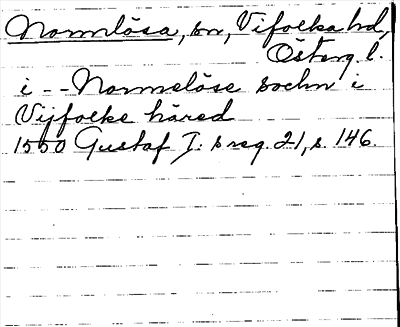 Normlösa, sn, Vifolka hd,
Österg. l.
i -- Normeløse sochn i
Vijfolke häred
1550 Gustaf I: s reg. 21, s. 146.